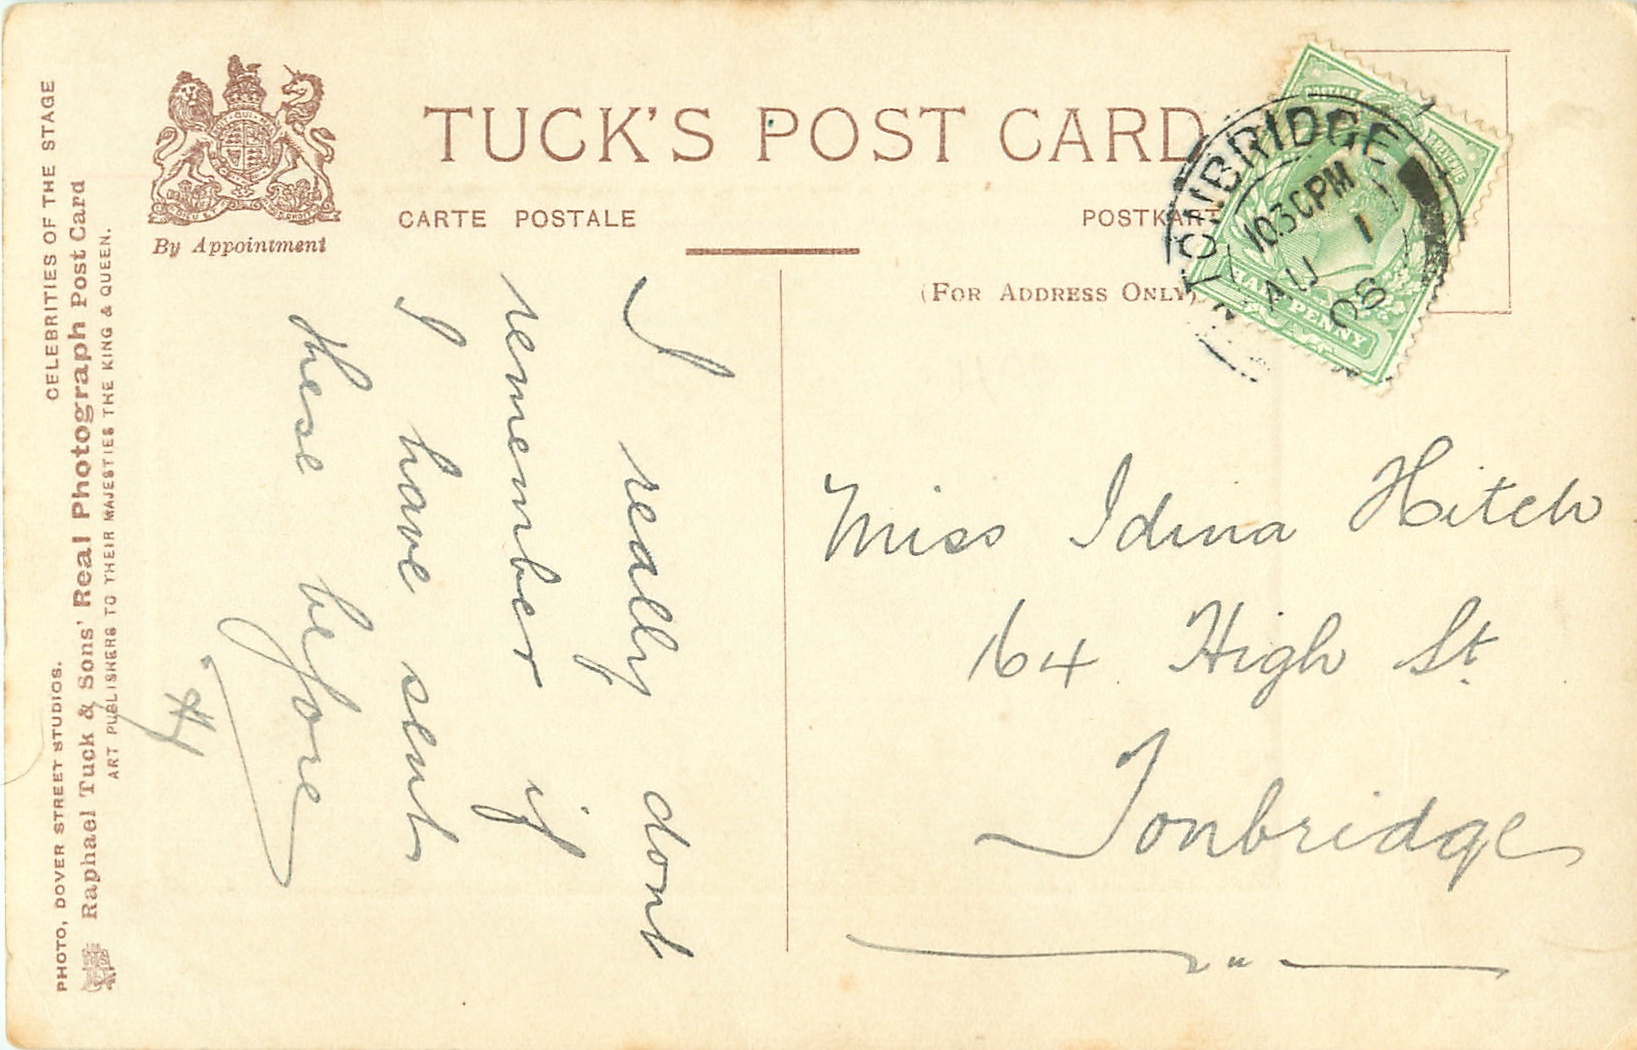 TUCK'S POST CARD
CARTE POSTALE
POSTKART
(FOR ADDRESS ONLY)
By Appointment
CELEBRITIES OF THE STAGE
PHOTO, DOVER STREET STUDIOS.
Raphael Tuck & Sons' Real Photograph Post Card
ART PUBLISHERS TO THEIR MAJESTIES THE KING & QUEEN.
I really dont
remember if
I have sent
these before
POSTAGE
REVENUE
HALFPENNY
TONBRIDGE
1030PM
AU 1
08
Miss Idina Hitch
164 High St.
Tonbridge